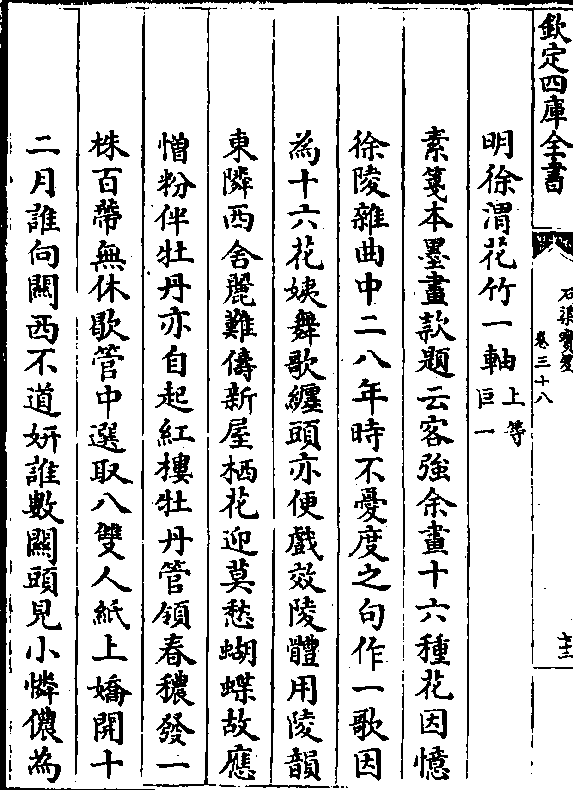 欽定四庫全書
石渠寳笈
卷三十八
明徐渭花竹一軸上等
巨一
素箋本墨畫款題云客強余畫十六種花因憶
徐陵雜曲中二八年時不憂度之句作一歌因
為十六花姨舞歌纏頭亦便戲效陵體用陵韻
東隣西舍麗難儔新屋栖花迎莫愁蝴蝶故應
憎粉伴牡丹亦自起紅樓牡丹管領春穠發一
株百蔕無休歇管中選取八雙人紙上嬌開十
二月誰向闗西不道妍誰數闗頭見小憐儂為